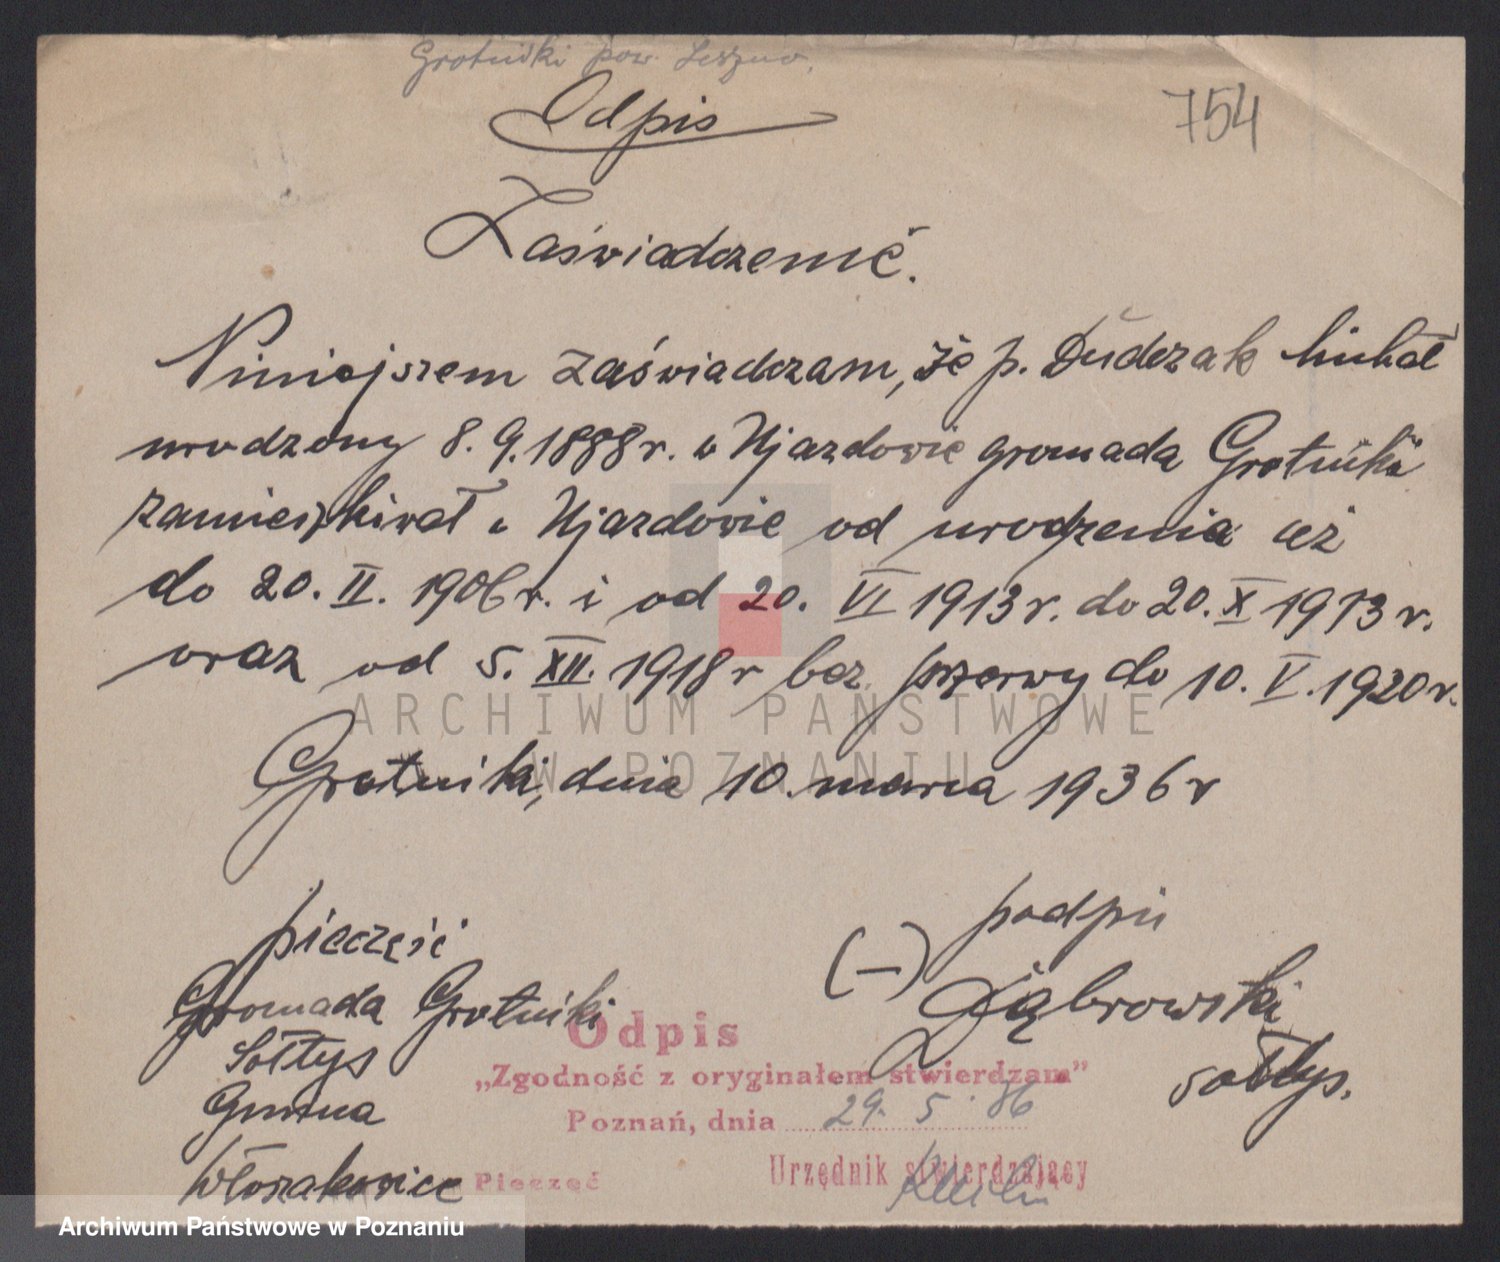 Grotniki pow. Leszno,
Odpis
754
Zaświadczenie.
Niniejszem zaświadczam, że p. Dudczak Michał
urodzony 8.9.1888r. w Ujazdowie gromada Grotniki
zamieszkiwał w Ujazdowie od urodzenia aż
do 20. II. 1906r. i od 20. VI 1913r. do 20. X 1913r.
oraz od 5. XII. 1918r bez przerwy do 10. V. 1920r.
Grotniki, dnia 10. marca 1936r
pieczęść
podpis
Gromada Grotniki
(-) Dąbrowski
Sołtys
sołtys.
Gmina
Włoszakowice
Odpis
„Zgodność z oryginałem stwierdzam”
Poznań, dnia 29. 5. 36
Pieczęć
Urzędnik stwierdzający
ARCHIWUM PAŃSTWOWE
W POZNANIU
Archiwum Państwowe w Poznaniu